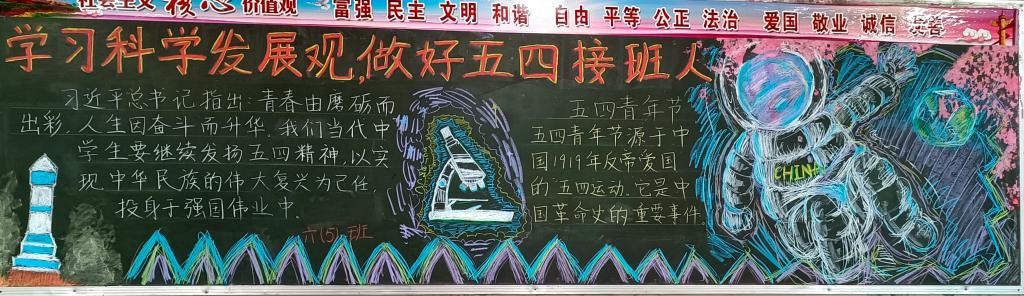 社会主义核心价值观 富强 民主 文明 和谐 自由 平等 公正 法治 爱国 敬业 诚信 友善
学习科学发展观,做好五四接班人
习近平总书记指出:青春由磨砺而
出彩,人生因奋斗而升华.我们当代中
学生要继续发扬五四精神,以实
现中华民族的伟大复兴为己任.
投身于强国伟业中.
六(5)班
五四青年节
五四青年节源于中
国1919年反帝爱国
的"五四运动.它是中
国革命史的重要事件
CHINA